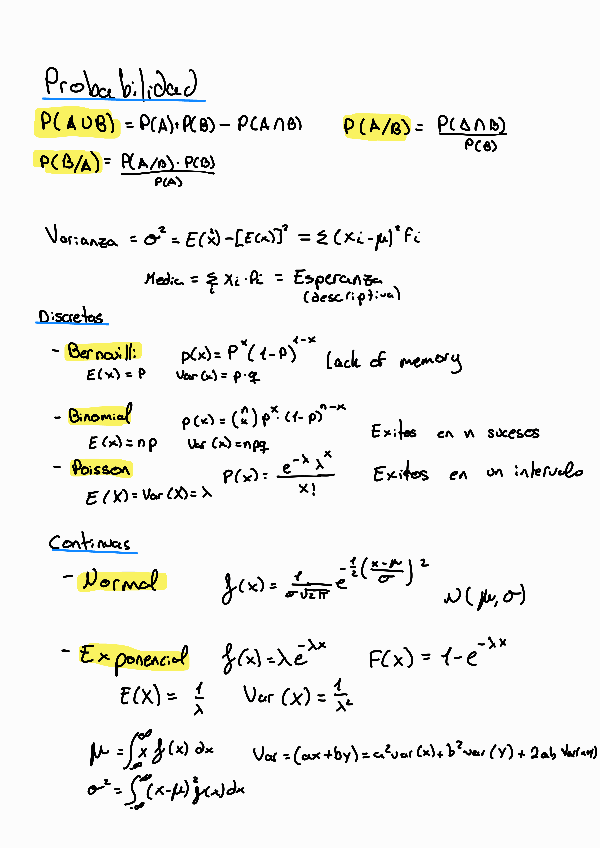 Probabilidad
P(A∪B) = P(A)+P(B) − P(A∩B)    P(A/B) = P(A∩B)/P(B)
P(B/A) = P(A/B)·P(B)/P(A)
Varianza = σ² = E(x²) − [E(x)]² = Σ(xi−μ)² fi
Media = Σ xi·Pi = Esperanza
(descriptiva)
Discretas
- Bernoulli: p(x) = P^x (1−P)^(1−x) Lack of memory
E(x) = P    Var(x) = p·q
- Binomial p(x) = (n x) p^x·(1−p)^(n−x)
E(x) = np    Var(x) = npq    Exitos en n sucesos
- Poisson P(x) = e^(−λ) λ^x / x!    Exitos en un intervalo
E(X) = Var(X) = λ
Continuas
- Normal f(x) = 1/(σ√2π) e^(−1/2((x−μ)/σ)²)    N(μ,σ)
- Exponencial f(x) = λe^(−λx)    F(x) = 1−e^(−λx)
E(X) = 1/λ    Var(X) = 1/λ²
μ = ∫_(−∞)^∞ x f(x) dx    Var = (ax+by) = a²var(x) + b²var(Y) + 2ab
σ² = ∫_(−∞)^∞ (x−μ)² f(x) dx